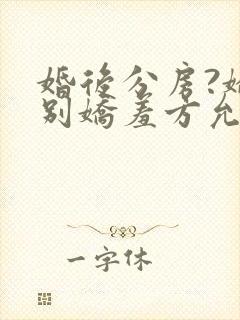 婚後分房?
別嬌羞方允
一字休